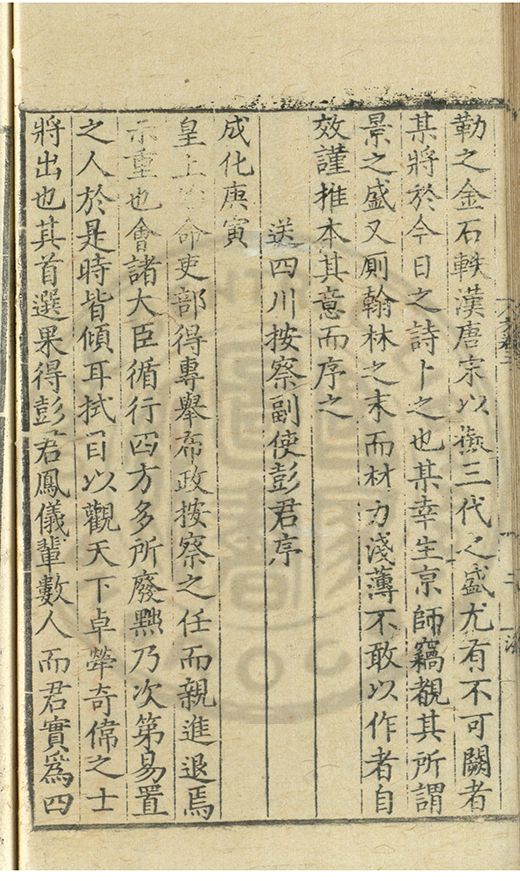 勒之金石軼漢唐宋以攀三代之盛尤有不可闕者
某將於今日之詩卜之也某幸生京師竊覩其所謂
景之盛又厠翰林之末而材力淺薄不敢以作者自
效謹推本其意而序之
送四川按察副使彭君序
成化庚寅
皇上 命吏部得專舉布政按察之任而親進退焉
示重也會諸大臣循行四方多所廢黜乃次第易置
之人於是時皆傾耳拭目以觀天下卓犖奇偉之士
將出也其首選果得彭君鳳儀輩數人而君實爲四